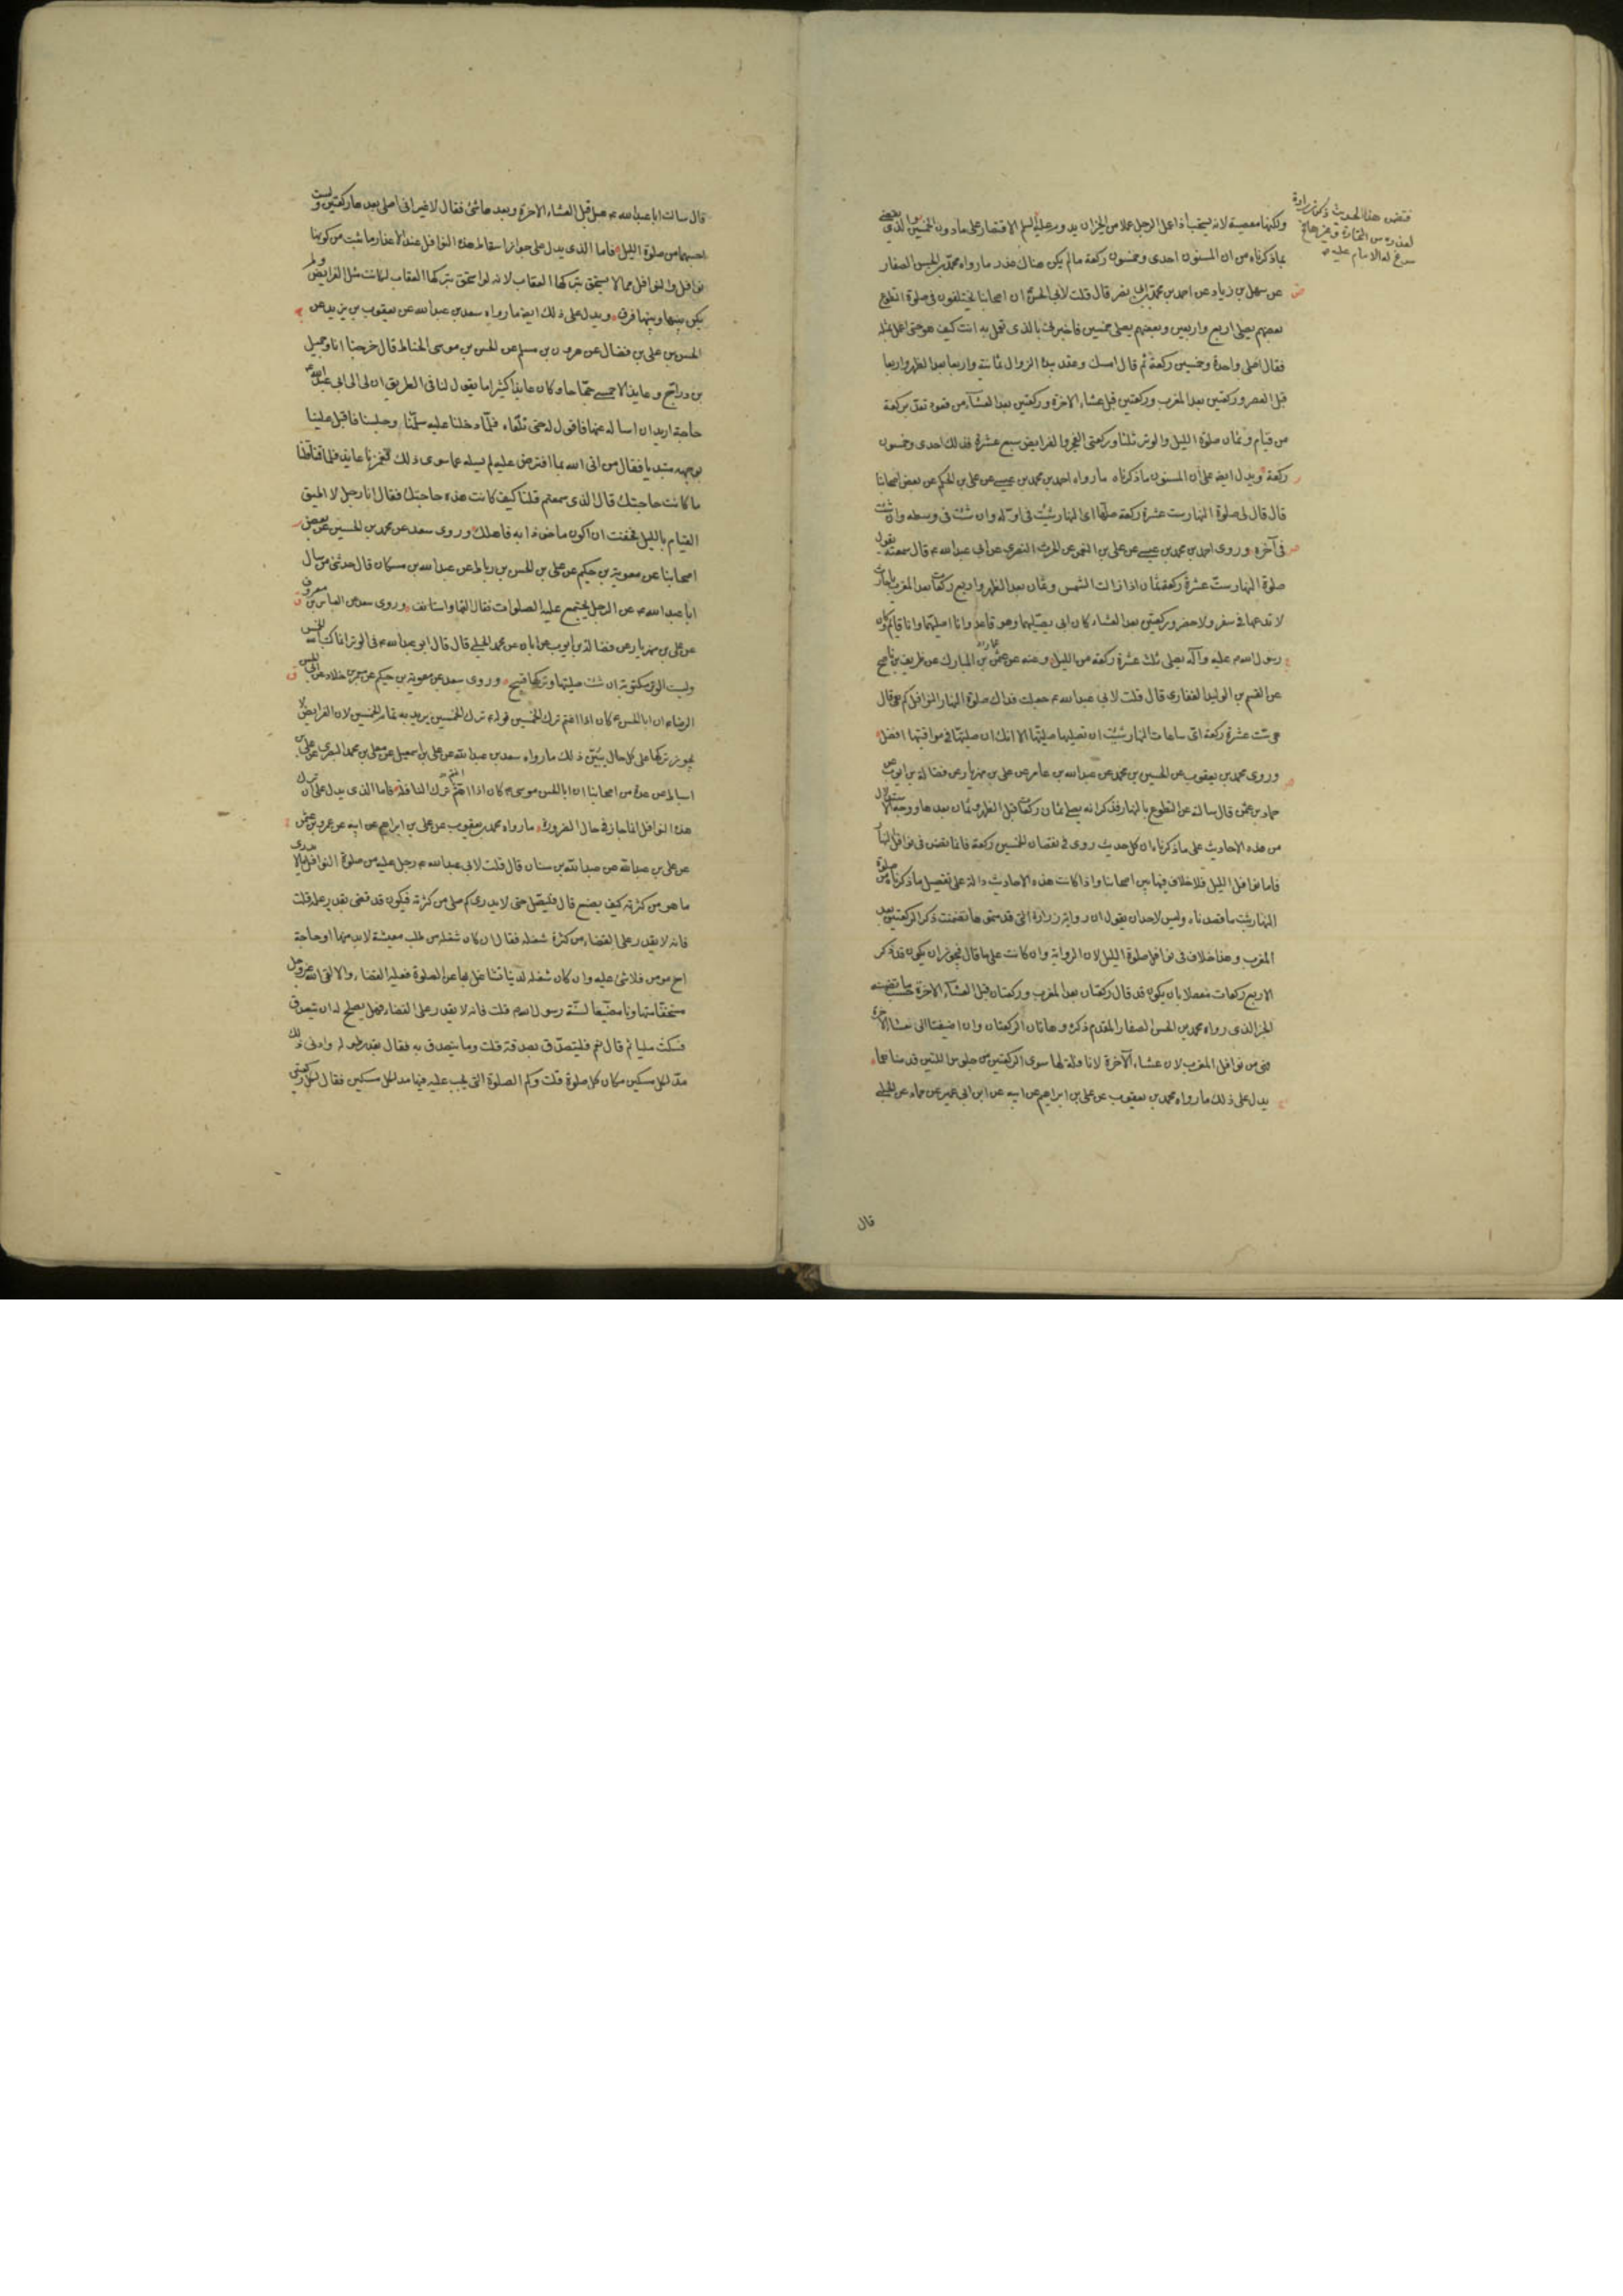 ولكنها معصية لانه يستحب اذا عمل الرجل عملا من الخير ان يدوم عليه السلم الاقتصار على مادون الخمسين والذي يقضي
بما ذكرناه من ان المسنون احدى وخمسون ركعة مالم يكن هناك عذر ما رواه محمد بن الحسن الصفار
عن سهل بن زياد عن احمد بن محمد بن ابي نصر قال قلت لابي الحسن ان اصحابنا يختلفون في صلوة التطوع
بعضهم يصلي اربع واربعين وبعضهم يصلي خمسين فاخبرني بالذي تعمل به انت كيف هو حتى اعمل بمثله
فقال اصلي واحدة وخمسين ركعة ثم قال امسك وعقد بيده الزوال ثمانية واربعا بعد الظهر واربعا
قبل العصر وركعتين بعد المغرب وركعتين قبل عشاء الاخرة وركعتين بعد العشاء من قعود تعد بركعة
من قيام وثمان صلوة الليل والوتر ثلثا وركعتي الفجر والفرايض سبع عشرة فذلك احدى وخمسون
ركعة ويدل ايضا على ان المسنون ما ذكرناه ما رواه احمد بن محمد بن عيسى عن علي بن الحكم عن بعض اصحابنا
قال قال لي صلوة النهار ست عشرة ركعة صلها اي النهار شئت في اوله وان شئت في وسطه وان شئت
في آخره وروى احمد بن محمد بن عيسى عن علي بن النعمن عن الحرث النصري عن ابي عبد الله ع قال سمعته يقول
صلوة النهار ست عشرة ركعة ثمان اذا زالت الشمس وثمان بعد الظهر واربع ركعات بعد المغرب يا حارث
لا تدعها في سفر ولا حضر وركعتين بعد العشاء كان ابي يصليهما وهو قاعد وانا اصليهما وانا قائم وكان
رسول الله ص عليه وآله يصلي ثلث عشرة ركعة من الليل وعنه عن عمار بن المبارك عن ظريف بن ناصح
عن القسم بن الوليد الغفاري قال قلت لابي عبد الله ع جعلت فداك صلوة النهار النوافل كم هي قال
هي ست عشرة ركعة اي ساعات النهار شئت ان تصليها صليتها الا انك ان صليتها في مواقيتها افضل
وروى محمد بن يعقوب عن الحسين بن محمد عن عبد الله بن عامر عن علي بن مهزيار عن فضالة بن ايوب عن
حماد بن عثمن قال سالته عن التطوع بالنهار فذكر انه يصلي ثمان ركعات قبل الظهر وثمان بعدها ووجه الاستدلال
من هذه الاحاديث على ما ذكرناه ان كل حديث روى في نقصان الخمسين ركعة فانما تضمن في نوافل النهار
فاما نوافل الليل فلا خلاف فيها بين اصحابنا واذا كانت هذه الاحاديث دالة على تفصيل ما ذكرناه من صلوة
النهار ثبت ما قصدناه وليس لاحد ان يقول ان رواية زرارة التي قدمتموها تضمنت ذكر الركعتين بعد
المغرب وهذا خلاف في نوافل صلوة الليل لان الرواية وان كانت على ما قال فيجوز ان يكون قد ذكر
الاربع ركعات مفصلا بان يكون قد قال ركعتان بعد المغرب وركعتان قبل العشاء الاخرة حسب ما تضمنه
الخبر الذي رواه محمد بن الحسن الصفار المقدم ذكره وهاتان الركعتان وان اضيفتا الى عشاء الآخرة
فهي من نوافل المغرب لان عشاء الآخرة لا نافلة لها سوى الركعتين من جلوس اللتين قدمناهما
يدل على ذلك ما رواه محمد بن يعقوب عن علي بن ابراهيم عن ابيه عن ابن ابي عمير عن حماد عن الحلبي
قال
فتضمن هذا الحديث ذكر زرارة
لعذره من التجارة وغيرها
سوغ له الامام عليه
قال سالت ابا عبد الله ع هل قبل العشاء الاخرة وبعدها شئ فقال لا غير اني اصلي بعدها ركعتين ولست
احسبهما من صلوة الليل فاما الذي يدل على جواز اسقاط هذه النوافل عند الاعذار ما ثبت من كونها
نوافل والنوافل مما لا يستحق بتركها العقاب لانه لو استحق بتركها العقاب لكانت مثل الفرايض ولم
يكن بينها وبينها فرق ويدل على ذلك ايضا ما رواه سعد بن عبد الله عن يعقوب بن يزيد عن
الحسن بن علي بن فضال عن هرون بن مسلم عن الحسن بن موسى الحناط قال خرجنا انا وجميل
بن دراج وعايذ الاحمسي حجاجا وكان عايذ كثيرا ما يقول لنا في الطريق ان لي الى ابي عبد الله ع
حاجة اريد ان اساله عنها فاقول له حتى نلقاه فلما دخلنا عليه سلمنا وجلسنا فاقبل علينا
بوجهه مبتديا فقال من اتى الله بما افترض عليه لم يسئله عما سوى ذلك فغمزنا عايذ فلما قمنا قلنا
ما كانت حاجتك قال الذي سمعتم قلنا كيف كانت هذه حاجتك فقال انا رجل لا اطيق
القيام بالليل فخفت ان اكون ماخوذا به فاهلك وروى سعد عن محمد بن الحسين عن بعض
اصحابنا عن معوية بن حكيم عن علي بن الحسن بن رباط عن عبد الله بن مسكان قال حدثني من سال
ابا عبد الله ع عن الرجل يجتمع عليه الصلوات فقال القها واستانف وروى سعد عن العباس بن معروف
عن علي بن مهزيار عن فضالة بن ايوب عن ابان عن محمد الحلبي قال قال ابو عبد الله ع في الوتر انما كتب الله الخمس
وليست الوتر مكتوبة ان شئت صليتها وتركها قبيح وروى سعد عن معوية بن حكيم عن معمر بن خلاد عن ابي الحسن
الرضا ع ان ابا الحسن ع كان اذا اغتم ترك الخمسين قوله ترك الخمسين يريد به تمام الخمسين لان الفرايض لا
يجوز تركها على كل حال يبين ذلك ما رواه سعد بن عبد الله عن علي بن اسمعيل عن معلى بن محمد البصري عن علي بن
اسباط عن عدة من اصحابنا ان ابا الحسن موسى ع كان اذا اهتم ترك النافلة فاما الذي يدل على ان ترك
هذه النوافل انما جاز في حال الضرورة ما رواه محمد بن يعقوب عن علي بن ابراهيم عن ابيه عن عمرو بن عثمن
عن علي بن عبد الله عن عبد الله بن سنان قال قلت لابي عبد الله ع رجل عليه من صلوة النوافل ما لا يدري
ما هو من كثرته كيف يصنع قال فليصل حتى لا يدري كم صلى من كثرته فيكون قد قضى بقدر علمه قلت
فانه لا يقدر على القضاء من كثرة شغله فقال ان كان شغله من طلب معيشة لا بد منها او حاجة
اخ مومن فلا شئ عليه وان كان شغله لدنيا تشاغل بها عن الصلوة فعليه القضاء والا لقى الله عز وجل
مستخفا متهاونا مضيعا لسنة رسول الله ص قلت فانه لا يقدر على القضاء فهل يصلح له ان يتصدق
فسكت مليا ثم قال نعم فليتصدق بصدقة قلت وما يتصدق به فقال بقدر طوله وادنى ذلك
مد لكل مسكين مكان كل صلوة قلت وكم الصلوة التي يجب عليه فيها مد لكل مسكين فقال لكل ركعتين